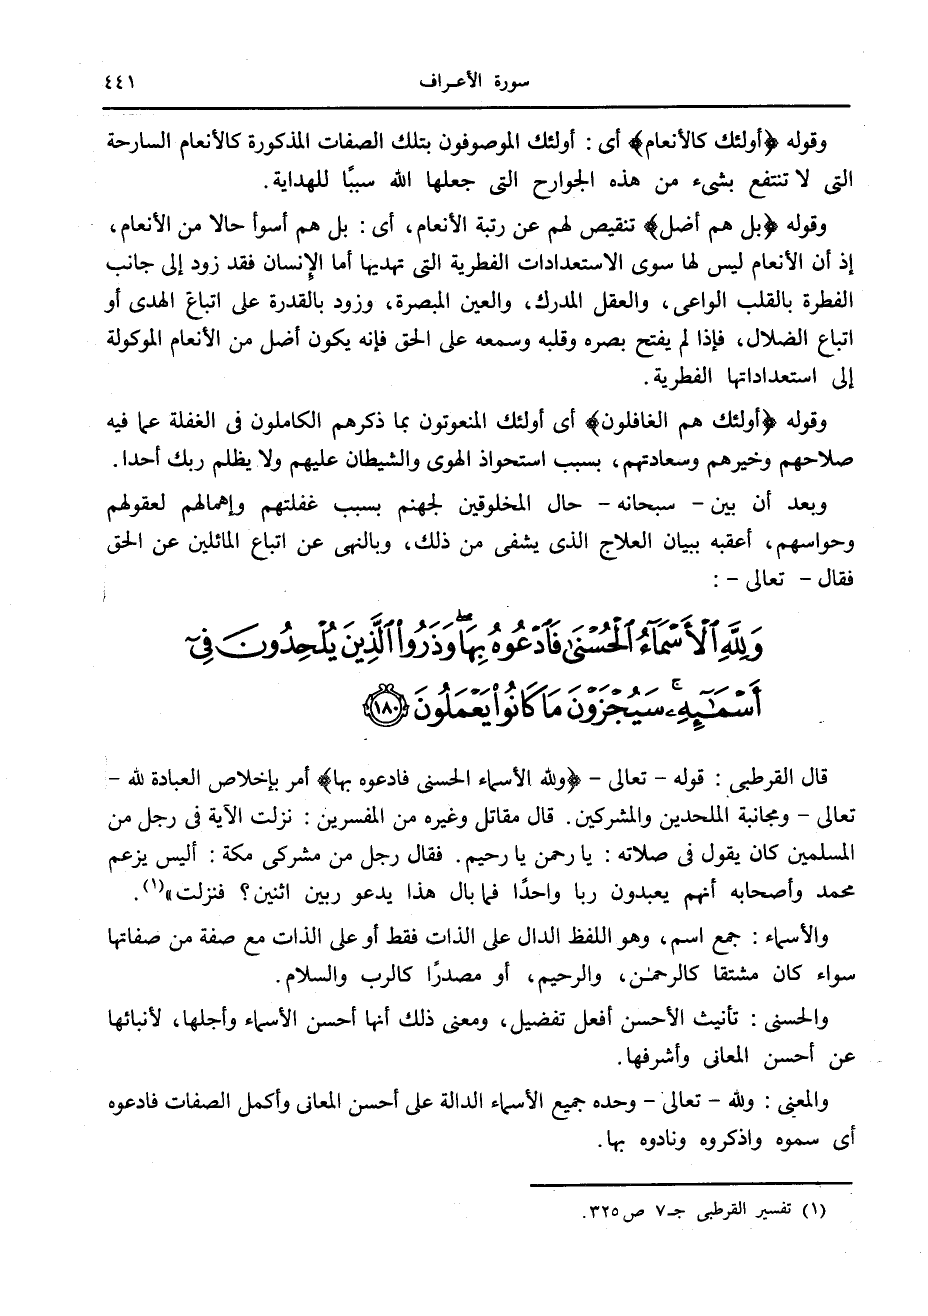 سورة الأعراف ٤٤١
وقوله ﴿أولئك كالأنعام﴾ أى : أولئك الموصوفون بتلك الصفات المذكورة كالأنعام السارحة
التى لا تنتفع بشىء من هذه الجوارح التى جعلها الله سببًا للهداية.
وقوله ﴿بل هم أضل﴾ تنقيص لهم عن رتبة الأنعام، أى : بل هم أسوأ حالا من الأنعام،
إذ أن الأنعام ليس لها سوى الاستعدادات الفطرية التى تهديها أما الإنسان فقد زود إلى جانب
الفطرة بالقلب الواعى، والعقل المدرك، والعين المبصرة، وزود بالقدرة على اتباع الهدى أو
اتباع الضلال، فإذا لم يفتح بصره وقلبه وسمعه على الحق فإنه يكون أضل من الأنعام الموكولة
إلى استعداداتها الفطرية.
وقوله ﴿أولئك هم الغافلون﴾ أى أولئك المنعوتون بما ذكرهم الكاملون فى الغفلة عما فيه
صلاحهم وخيرهم وسعادتهم، بسبب استحواذ الهوى والشيطان عليهم ولا يظلم ربك أحدا.
وبعد أن بين - سبحانه - حال المخلوقين لجهنم بسبب غفلتهم وإهمالهم لعقولهم
وحواسهم، أعقبه ببيان العلاج الذى يشفى من ذلك، وبالنهى عن اتباع المائلين عن الحق
فقال - تعالى - :
وَلِلَّهِ ٱلْأَسْمَآءُ ٱلْحُسْنَىٰ فَٱدْعُوهُ بِهَا ۖ وَذَرُوا۟ ٱلَّذِينَ يُلْحِدُونَ فِىٓ
أَسْمَـٰٓئِهِۦ ۚ سَيُجْزَوْنَ مَا كَانُوا۟ يَعْمَلُونَ ١٨٠
قال القرطبى : قوله - تعالى - ﴿ولله الأسماء الحسنى فادعوه بها﴾ أمر بإخلاص العبادة لله -
تعالى - ومجانبة الملحدين والمشركين. قال مقاتل وغيره من المفسرين : نزلت الآية فى رجل من
المسلمين كان يقول فى صلاته : يا رحمن يا رحيم. فقال رجل من مشركى مكة : أليس يزعم
محمد وأصحابه أنهم يعبدون ربا واحدًا فما بال هذا يدعو ربين اثنين؟ فنزلت»(١).
والأسماء : جمع اسم، وهو اللفظ الدال على الذات فقط أو على الذات مع صفة من صفاتها
سواء كان مشتقا كالرحمٰن، والرحيم، أو مصدرًا كالرب والسلام.
والحسنى : تأنيث الأحسن أفعل تفضيل، ومعنى ذلك أنها أحسن الأسماء وأجلها، لأنبائها
عن أحسن المعانى وأشرفها.
والمعنى : ولله - تعالى - وحده جميع الأسماء الدالة على أحسن المعانى وأكمل الصفات فادعوه
أى سموه واذكروه ونادوه بها.
(١) تفسير القرطبى جـ٧ ص٣٢٥.